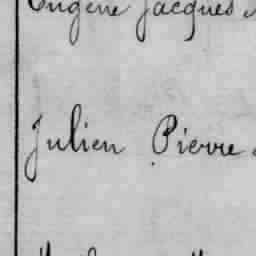 Eugène Jacques
Julien Pierre